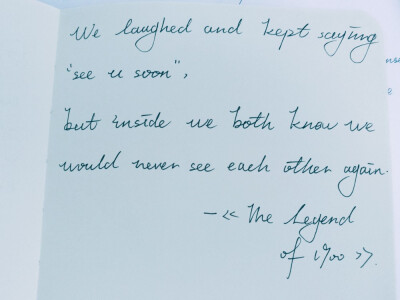 We laughed and kept saying
"see u soon",
but inside we both know we
would never see each other again.
—<< The Legend
of 1900 >>.